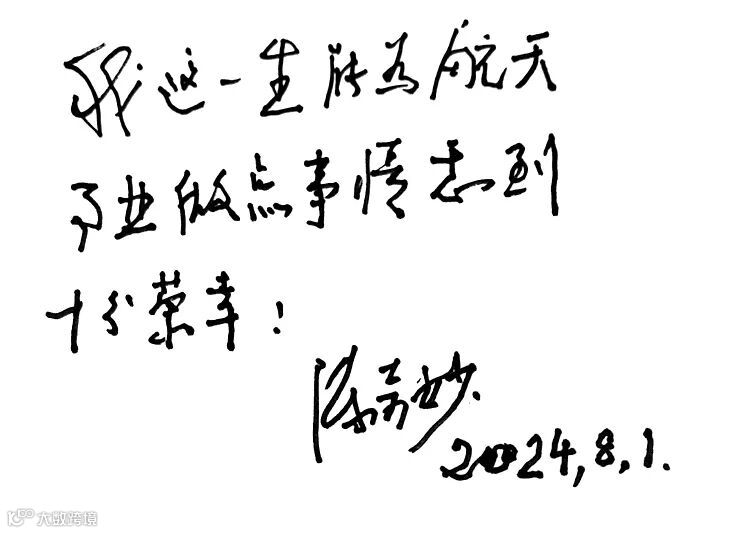 我这一生能为航天
事业做点事情感到
十分荣幸!
陈奇妙
2024,8,1.
大数跨境